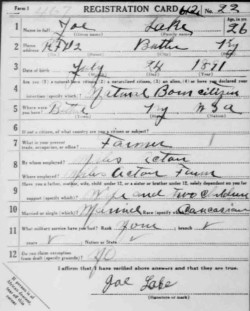 Form 1
REGISTRATION CARD
No. 22
1 Name in full Joe Lake
(Given name) (Family name)
Age, in yrs. 26
2 Home address RFD2 Butler Ky
3 Date of birth July 24 1891
(Month) (Day) (Year)
4 Are you (1) a natural-born citizen, (2) a naturalized citizen, (3) an alien, (4) or have you declared your intention (specify which)? Natural Born citizen
5 Where were you born? Ky USA
6 If not a citizen, of what country are you a citizen or subject?
7 What is your present trade, occupation, or office? Farmer
8 By whom employed?
Where employed? Farm
9 Have you a father, mother, wife, child under 12, or a sister or brother under 12, solely dependent on you for support (specify which)? Wife and Two Children
10 Married or single (which)? Married Race (specify which)? Caucasian
11 What military service have you had? Rank None ; branch
years ; Nation or State
12 Do you claim exemption from draft (specify grounds)? No
I affirm that I have verified above answers and that they are true.
Joe Lake
(Signature or mark)